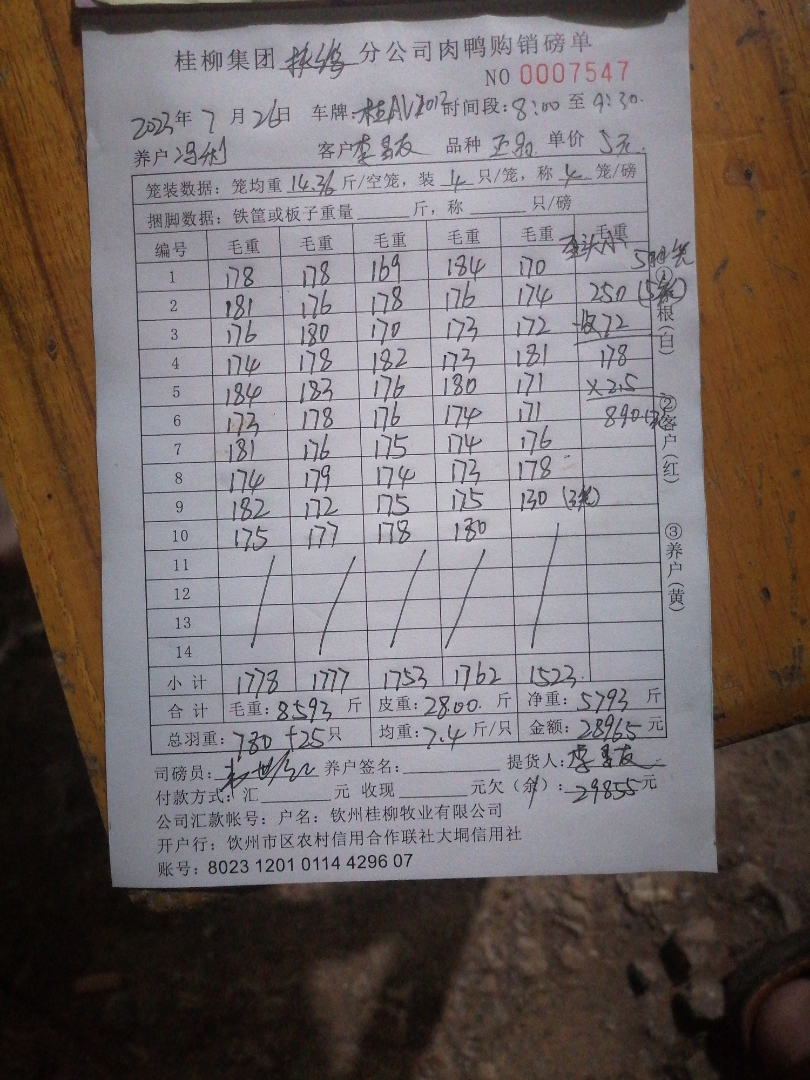 桂柳集团 扶绥 分公司肉鸭购销磅单
NO 0007547
2023年 7 月 26日 车牌: 桂AV2013 时间段: 8:00 至 9:30.
养户 客户 李易友 品种 单价 5元
笼装数据: 笼均重 14.36 斤/空笼, 装 14 只/笼, 称 4 笼/磅
捆脚数据: 铁筐或板子重量 斤, 称 只/磅
编号 毛重 毛重 毛重 毛重 毛重 毛重
1 178 178 169 184 170
2 181 176 178 176 174 250
3 176 180 170 173 172 72
4 174 178 182 173 181 178
5 184 183 176 180 171 ×2.5
6 173 178 176 174 171 890
7 181 176 175 174 176
8 174 179 174 173 178
9 182 172 175 175 130 (3笼)
10 175 177 178 180
11
12
13
14
小计 1778 1777 1753 1762 1523
合计 毛重: 8593 斤 皮重: 2800. 斤 净重: 5793 斤
总羽重: 780+25只 均重: 7.4 斤/只 金额: 28965 元
司磅员: 养户签名: 提货人: 李易友
付款方式: 汇 元 收现 元欠(余): 29855元
公司汇款帐号: 户名: 钦州桂柳牧业有限公司
开户行: 钦州市区农村信用合作联社大垌信用社
账号: 8023 1201 0114 4296 07
根(白)
②客户(红)
③养户(黄)